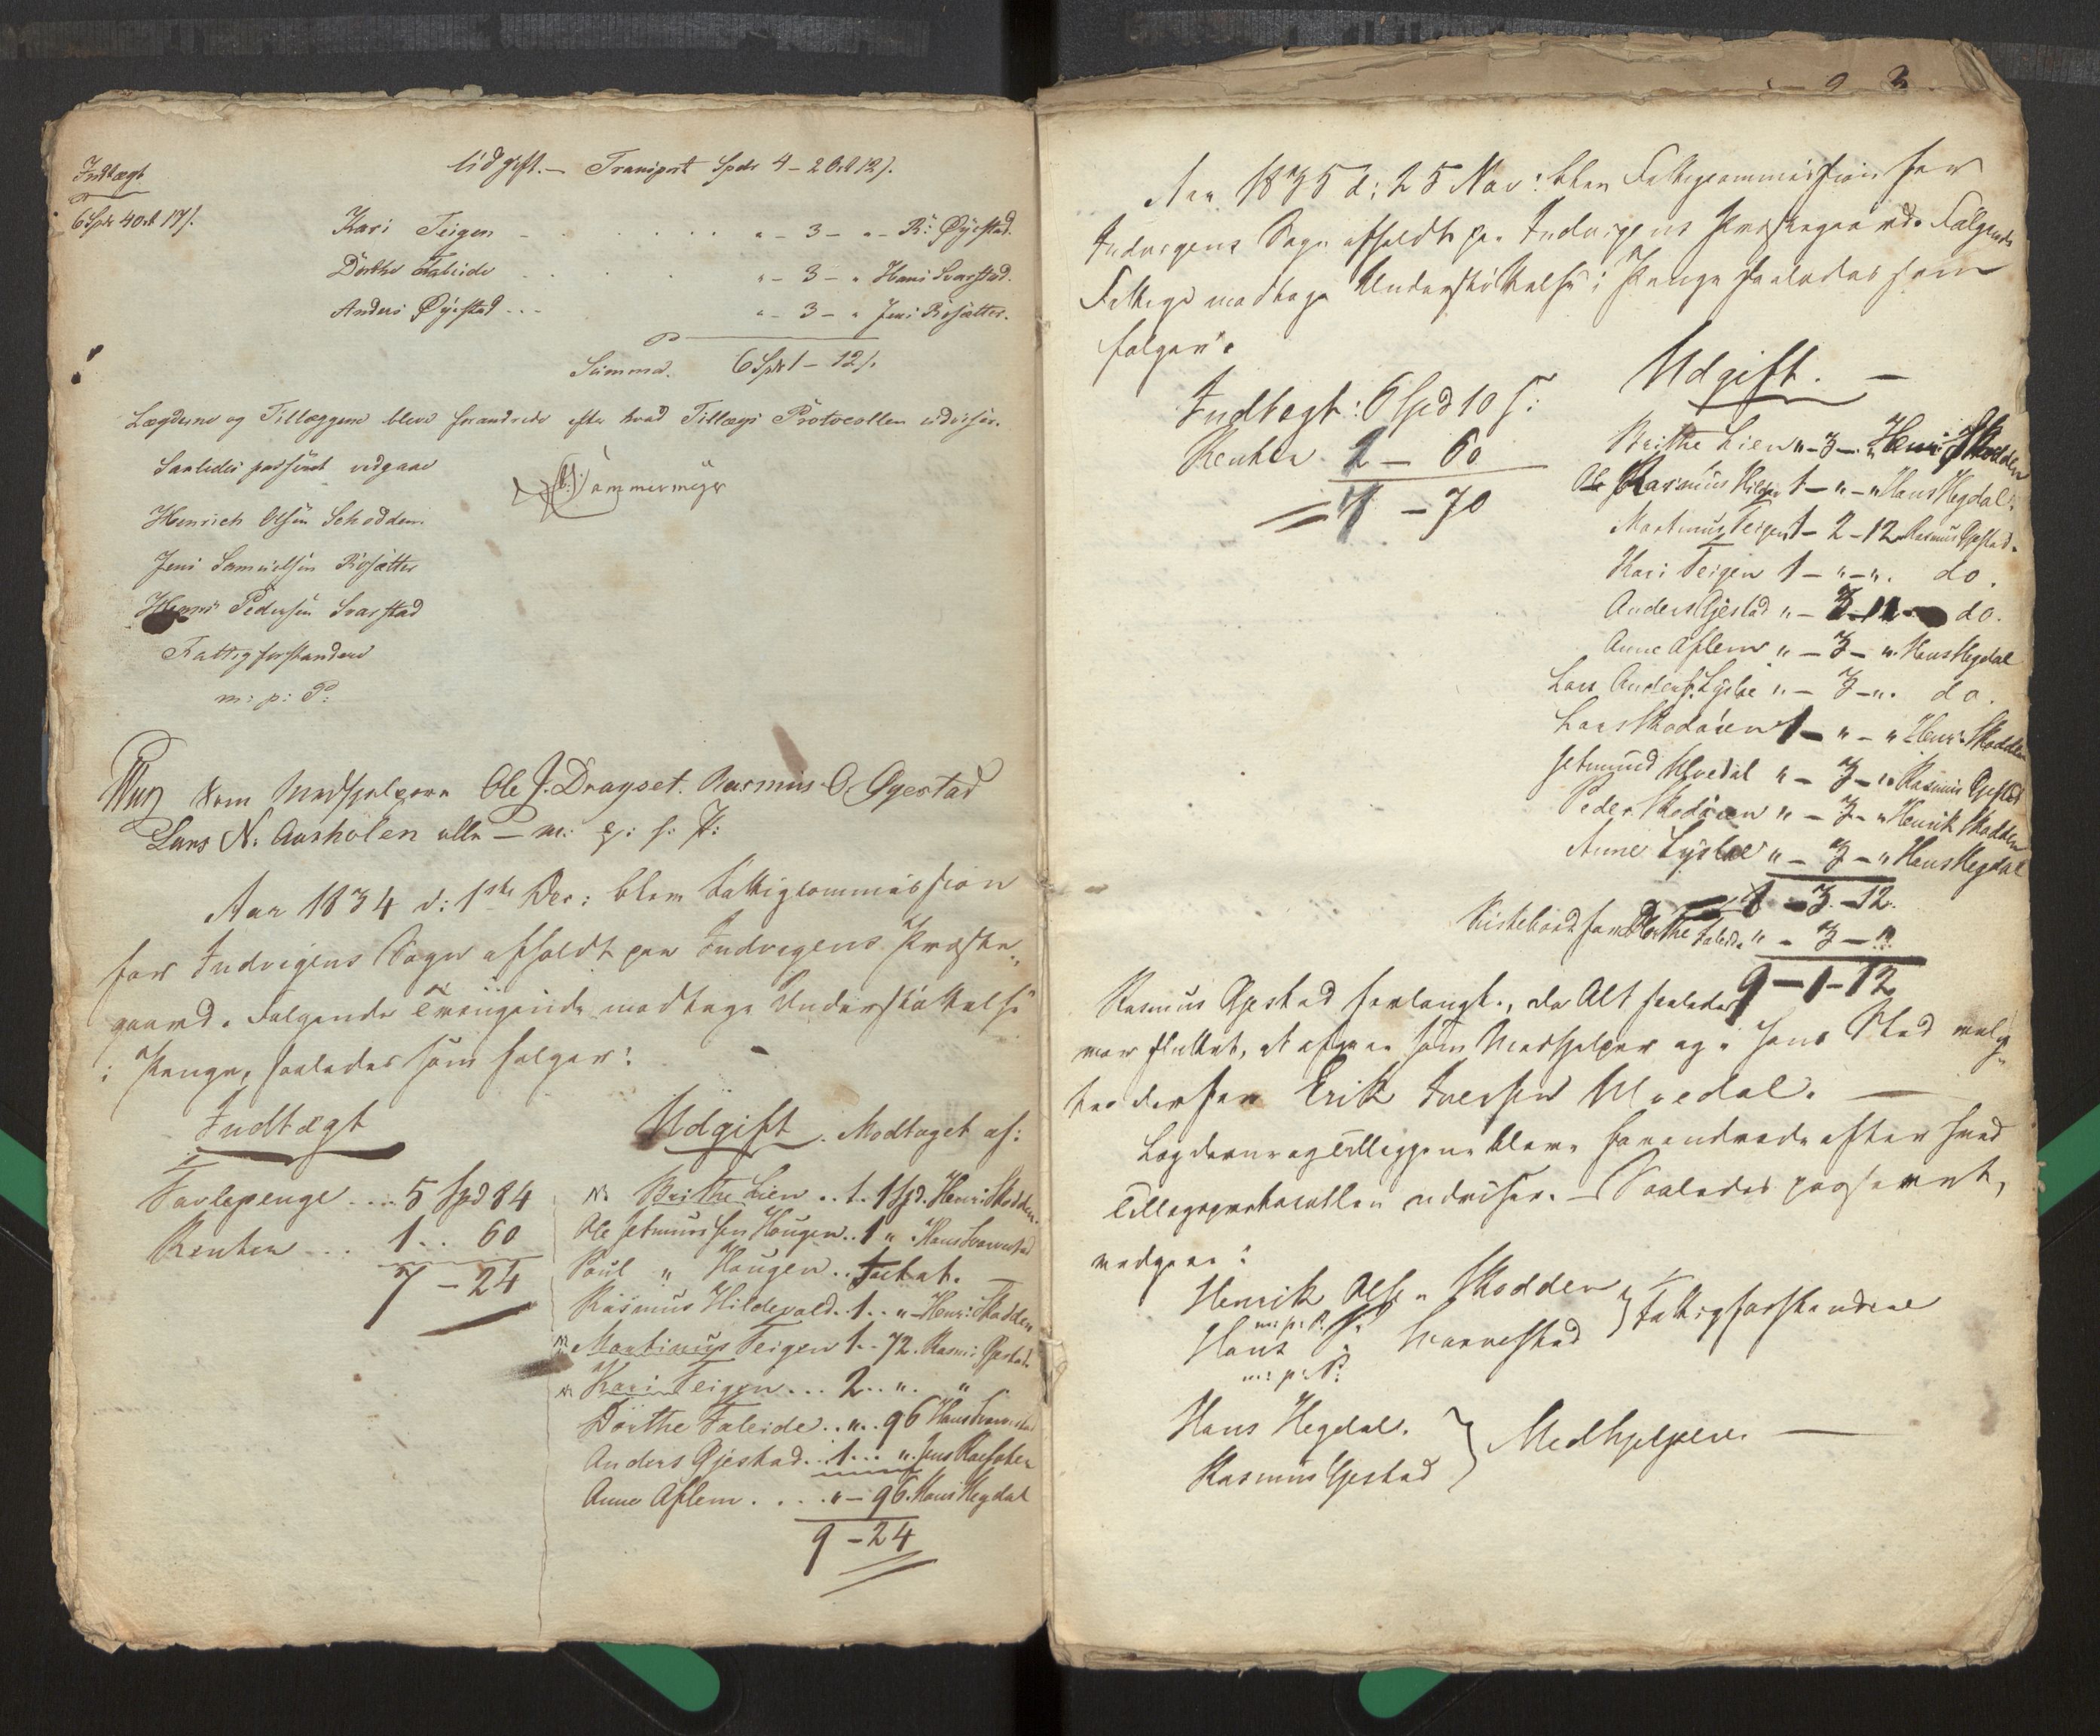 Indtægt
6 Spdr 4 Ort 17 s.
Udgift. – Transport Spdr 4 – 2 Ort 12 s.
Kari Teigen - . . . . . " – 3 – " – R: Øyestad.
Dorthe Faleide . . . . " – 3 – " Hans Svarstad.
Anders Øyestad . . . " – 3 – " Jens Rosætter.
Summa. 6 Spdr 1 – 12 s.
Lægderne og Tillæggene bleve forandrede efter hvad Tillægs Protocollen udviser.
Saaledes passeret vidgaae
Henrich Olsen Schodden.
Jens Samuelsen Rosætter
Hans Pedersen Svarstad
Fattigforstandere
m: p: P:
Som Medhjelpere Ole J. Drageset. Rasmus O. Øyestad
Lars N. Aarholen alle – m: p: P:
Aar 1834 d: 1ste Dec: blev Fattigcommission
for Indvigens Sogn afholdt paa Indvigens Præste-
gaard. Følgende Trængende modtage Understøttelse
i Penge, saaledes som følger:
Indtægt
Tavlepenge . . . 5 Spd 84
Renter . . . 1 . . 60
7 – 24
Udgift. Modtaget af:
Brithe Lien . . 1. 1 Spd. Henr: Skodden.
Ole Jetmundsen Haugen . . 1 " Hans Svarestad
Poul " Haugen . .
Rasmus Hildevald . . 1 . . " – Henr: Skodden
Martinus Teigen 1 . . 72. Rasm: Øjestad.
Kari Teigen . . . 2 . . " . "
Dorthe Faleide . . " . . 96 Hans Svarestad
Anders Øjestad . . 1 . . . " . Jens Roesæter
Anne Aflem . . . . " – 96. Hans Hegdal
9 – 24
Aar 1835 d: 25 Nov: blev Fattigcommission for
Indvigens Sogn afholdt paa Indvigens Præstegaard. Følgende
Fattige modtage Understøttelse i Penge saaledes som
følger:
Indtægt: 6 Spd 10 s:
Renter 1 – 60
– 70
Udgift. –
Brithe Lien " – 3 – " Henr: Skodden
Rasmus Hilde 1 – " – " Hans Hegdal.
Martinus Teigen 1 – 2 – 12 Rasmus Øjestad.
Kari Teigen 1 – " – " . do.
Anders Øjestad " – do.
Anne Aflem " – 3 – " . Hans Hegdal
Lars Anders. Lysloe " – 3 – " . do.
Lars Skodøien 1 – " – " Henr: Skodden
Jetmund Ulvedal " – 3 – " Rasmus Øjestad
Peder Skodøien " – 3 – " Henrik Skodden
Anne Lysloe " – 3 – " Hans Hegdal
8 – 3 – 12.
Kistebord for Dorthe Faleide " – 3 – "
9 – 1 – 12
Rasmus Øjestad forlangte, da Alt saaledes
var sluttet, at afgaae som Medhjelper og i hans Sted valg-
tes derfor Erik Iversen Ulvedal. –
Lægderne og Tillæggene bleve forandrede efter hvad
Tillægsprotocollen udviser. – Saaledes passeret,
vedgaae:
Henrik Olsen Skodden
m: p: P:
Hans P. Svarrestad } Fattigforstandere
m: p: P:
Hans Hegdal.
Rasmus Øjestad } Medhjelpere. –